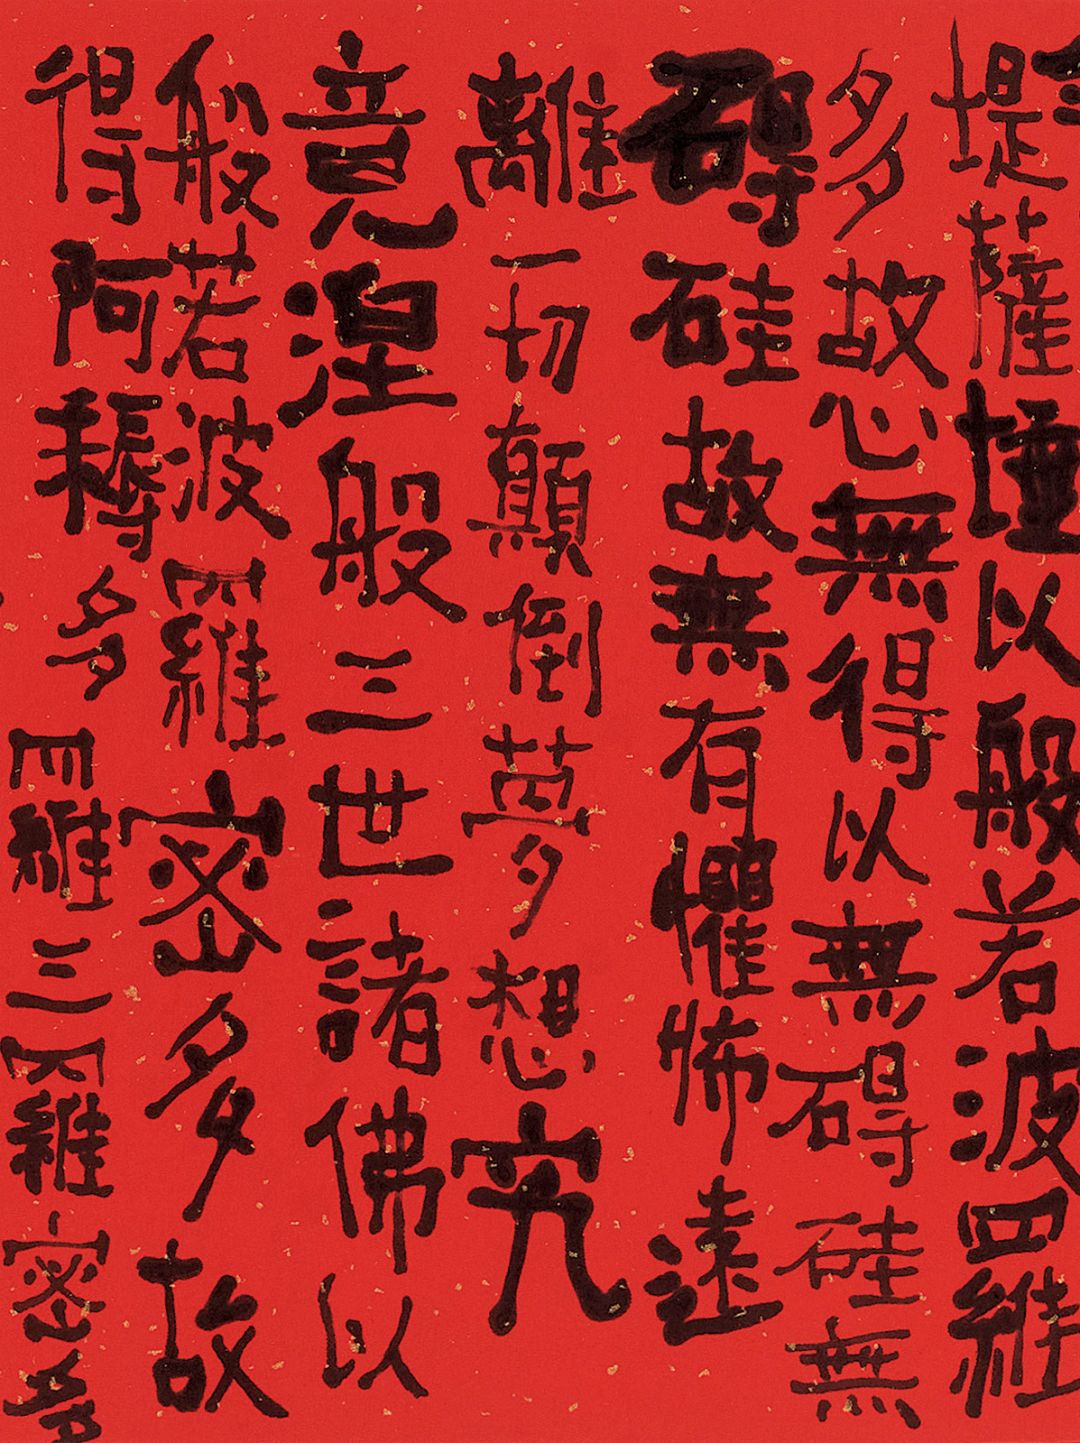 堤薩埵以般若波羅
多故心無得以無碍硅無
碍硅故無有懼怖遠
離一切顛倒夢想究
竟涅般三世諸佛以
般若波羅密多故
得阿耨多羅三羅密多